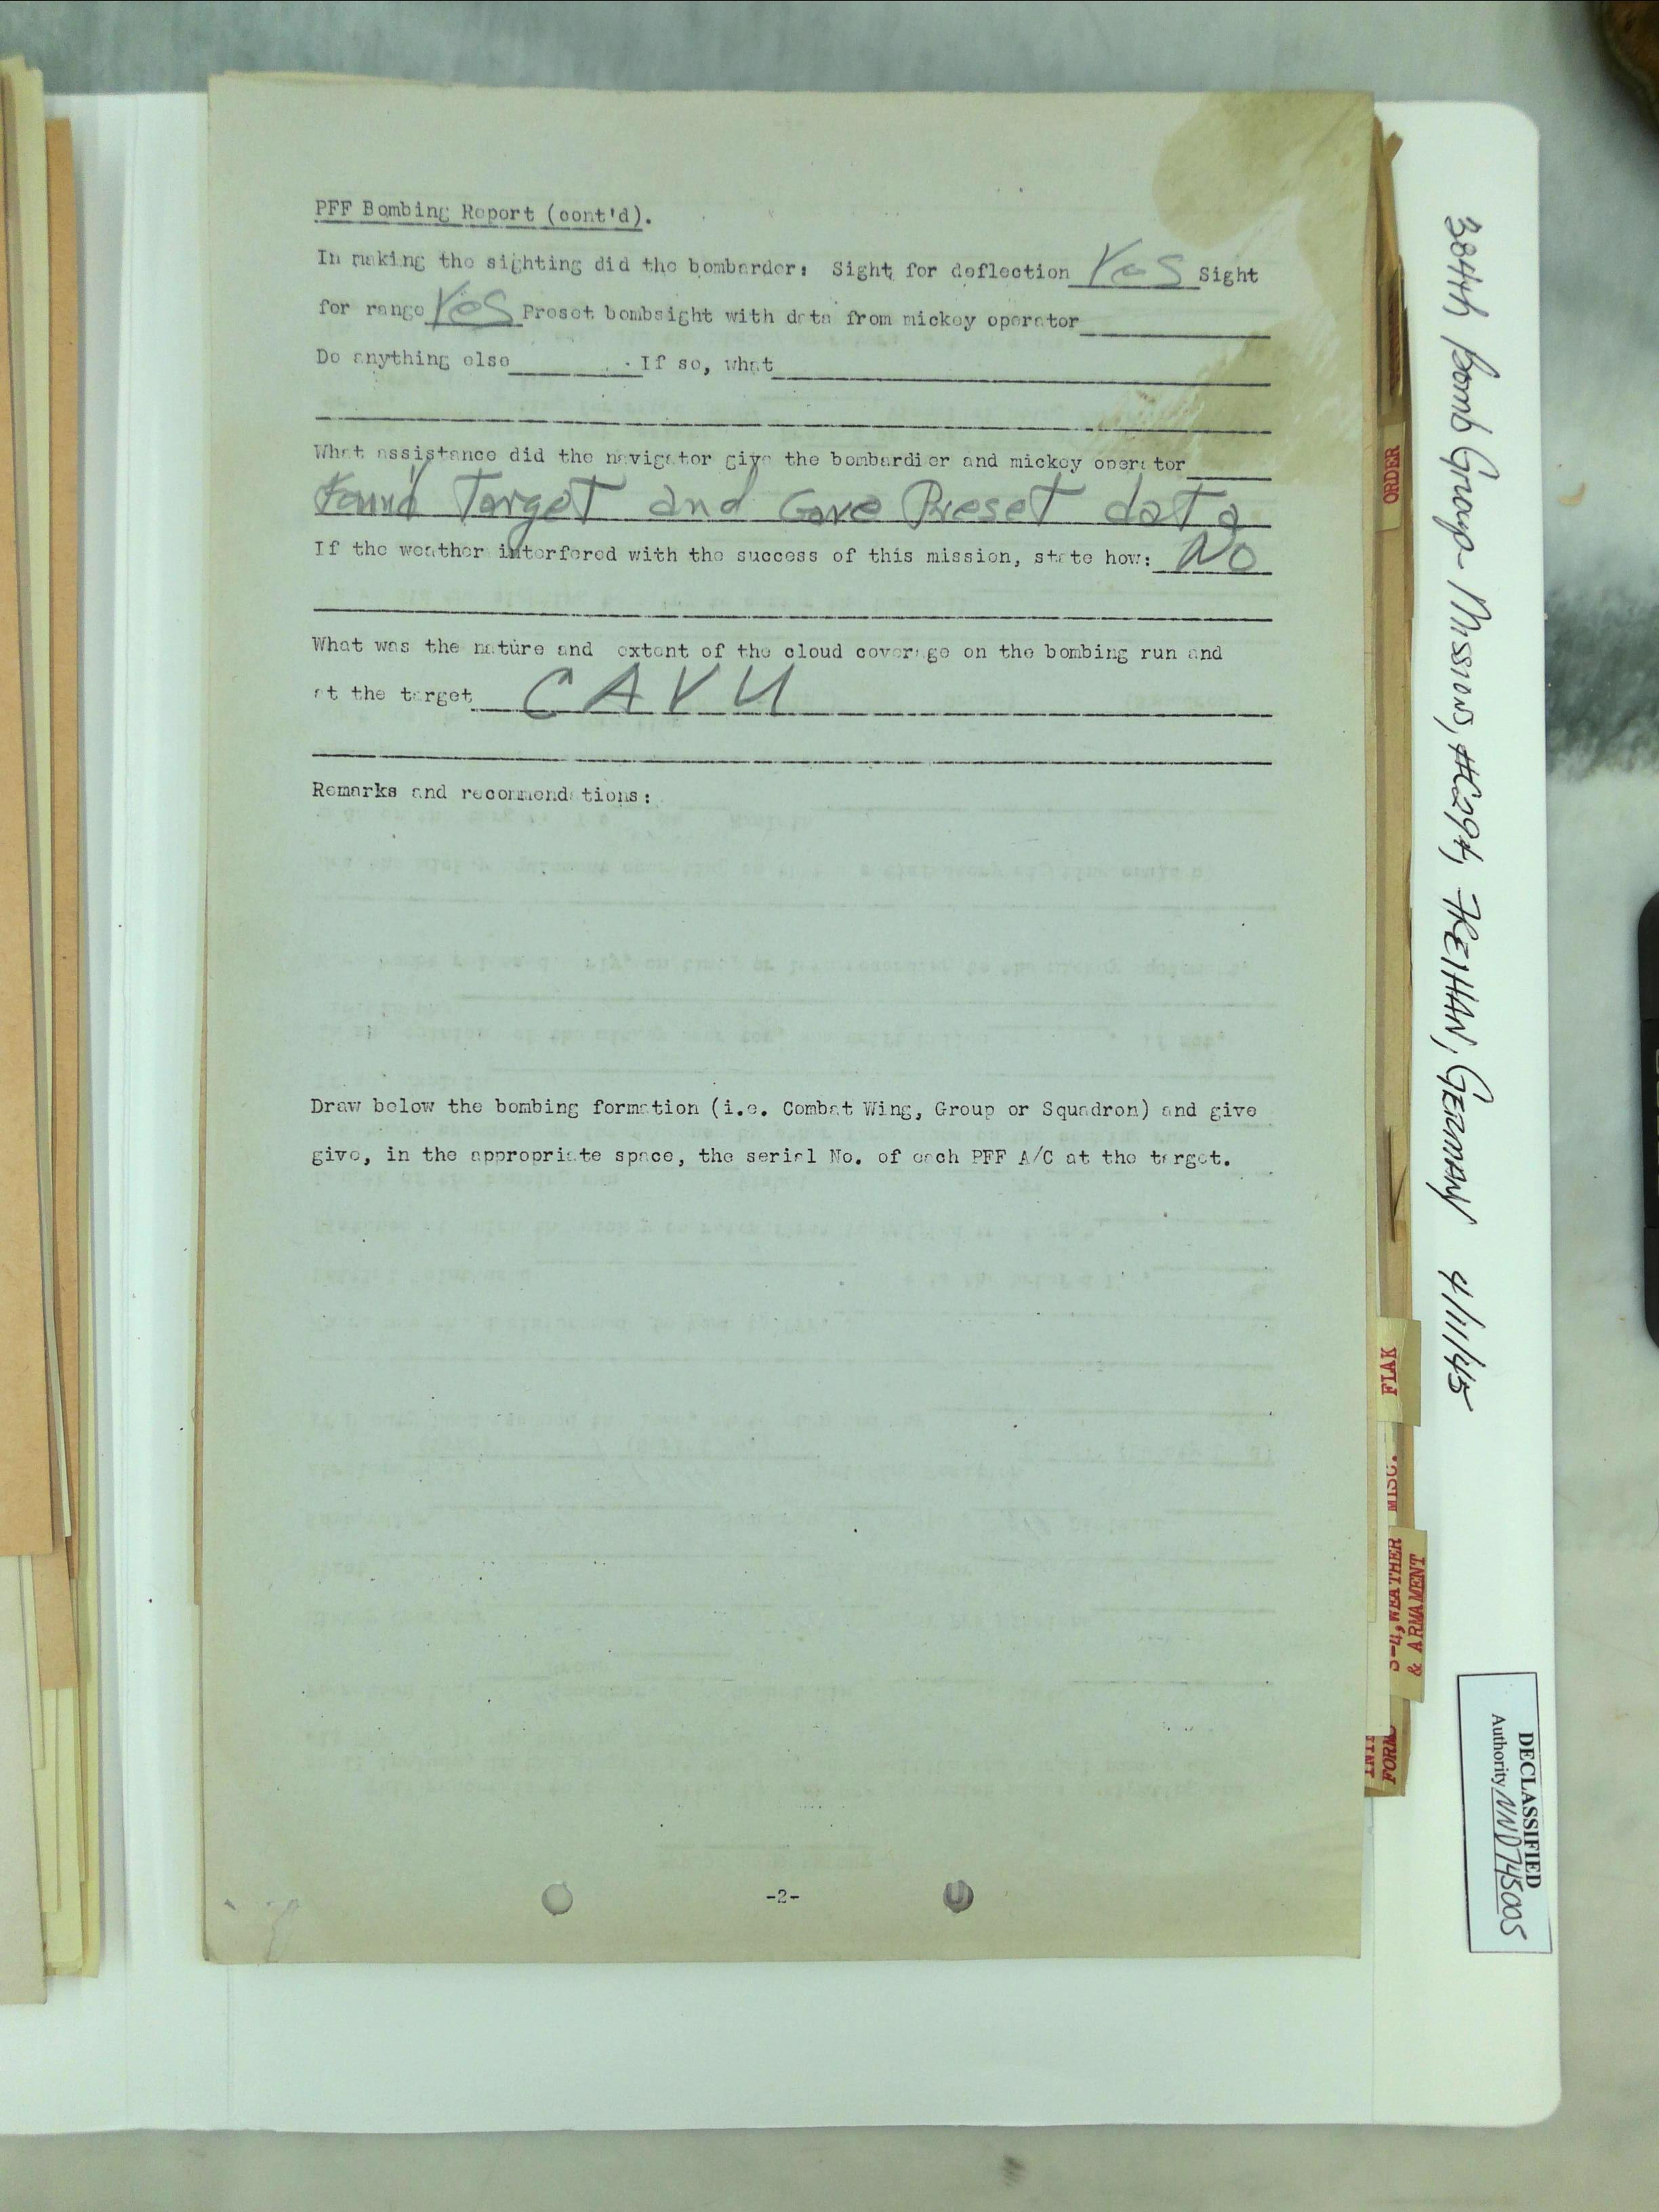 PFF Bombing Report (cont'd).
In making the sighting did the bombarder: Sight for deflection Yes Sight
for range Yes Preset bombsight with data from mickey operator
Do anything else If so, what
What assistance did the navigator give the bombardier and mickey operator
Found Target and Gave Preset data
If the weather interfered with the success of this mission, state how: No
What was the nature and extent of the cloud coverage on the bombing run and
at the target CAVU
Remarks and recommendations:
Draw below the bombing formation (i.e. Combat Wing, Group or Squadron) and give
give, in the appropriate space, the serial No. of each PFF A/C at the target.
-2-
ORDER
FLAK
MISC.
S-4, WEATHER
& ARMAMENT
FORMS
384th Bomb Group- Missions, #294, GERMANY 4/11/45
DECLASSIFIED
Authority NND745005